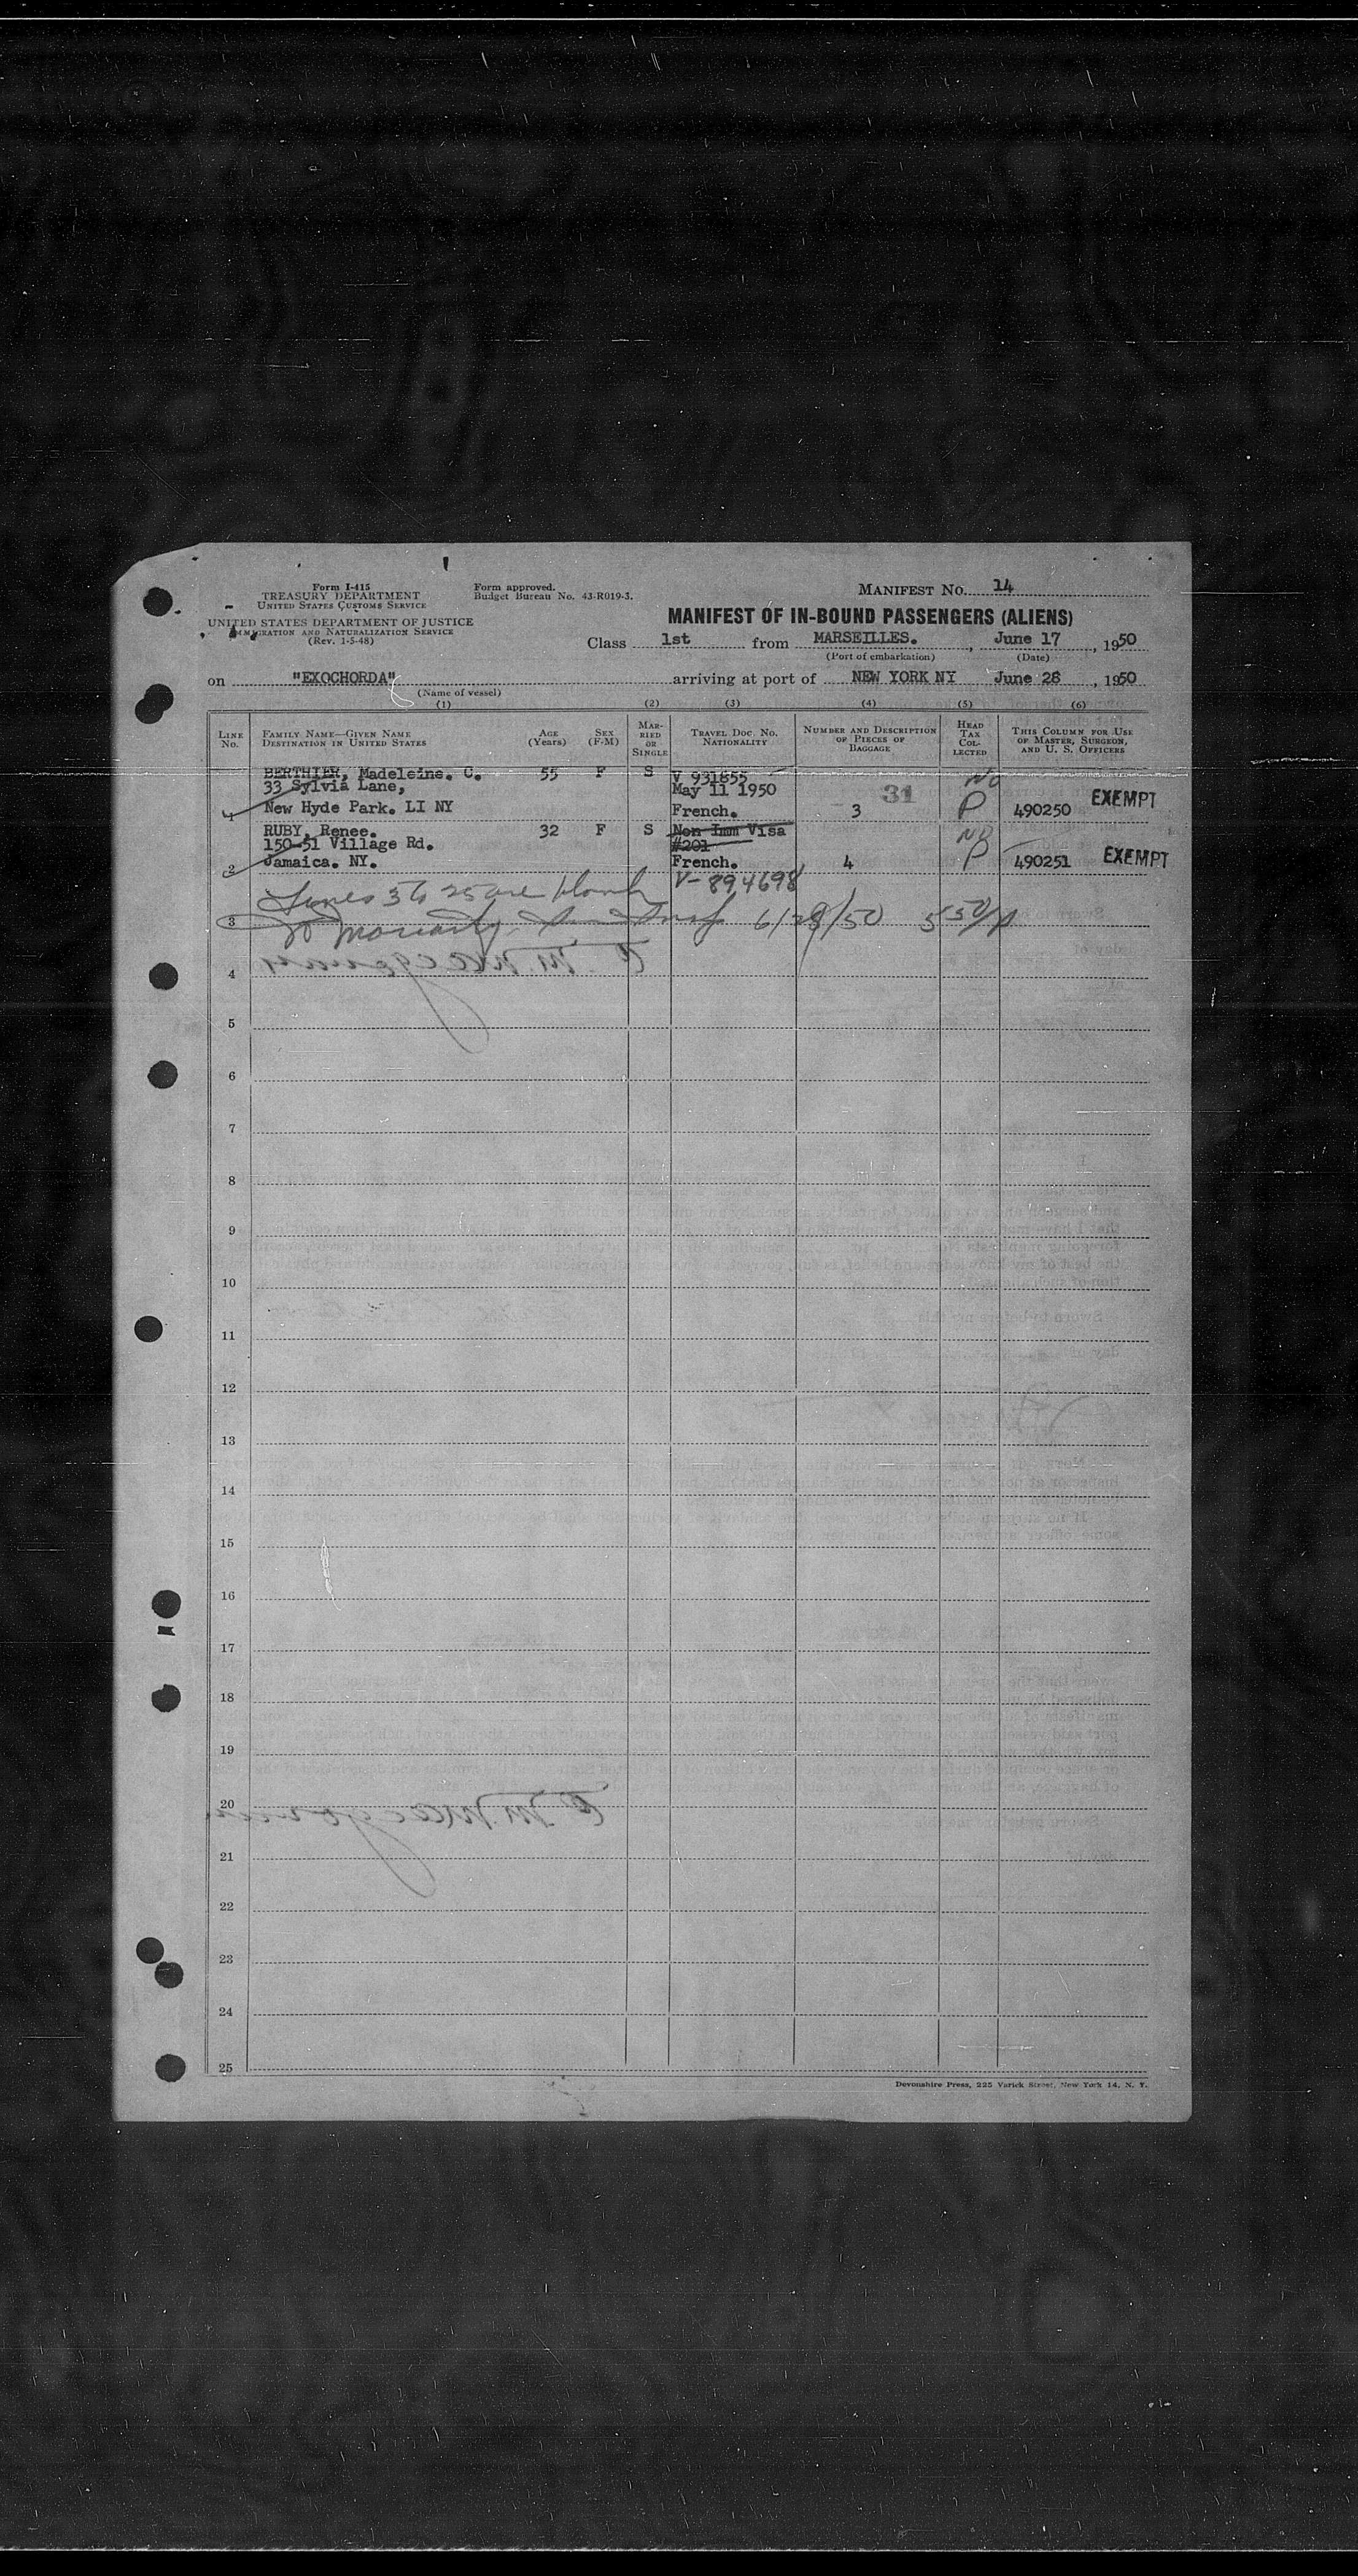 Form I-415
TREASURY DEPARTMENT
UNITED STATES CUSTOMS SERVICE
UNITED STATES DEPARTMENT OF JUSTICE
IMMIGRATION AND NATURALIZATION SERVICE
(Rev. 1-5-48)
Form approved.
Budget Bureau No. 43-R019-3.
MANIFEST NO. 14
MANIFEST OF IN-BOUND PASSENGERS (ALIENS)
Class 1st from MARSEILLES. , June 17 , 1950
(Port of embarkation) (Date)
on "EXOCHORDA" arriving at port of NEW YORK NY June 28 , 1950
(Name of vessel)
(1) (2) (3) (4) (5) (6)
LINE NO.
FAMILY NAME—GIVEN NAME
DESTINATION IN UNITED STATES
AGE (YEARS)
SEX (F-M)
MARRIED OR SINGLE
TRAVEL DOC. NO. NATIONALITY
NUMBER AND DESCRIPTION OF PIECES OF BAGGAGE
HEAD TAX COLLECTED
THIS COLUMN FOR USE OF MASTER, SURGEON, AND U. S. OFFICERS
BERTHIER, Madeleine. C. 55 F S V 931855 No
33 Sylvia Lane, May 11 1950 31
1 New Hyde Park. LI NY French. 3 P 490250 EXEMPT
RUBY, Renee. 32 F S Non Imm Visa No
150-51 Village Rd. #201
2 Jamaica. NY. French. 4 P 490251 EXEMPT
V-894698
Lines 3 to 25 are blank
3 Moriarty 6/28/50 550/p
4
5
6
7
8
9
10
11
12
13
14
15
16
17
18
19
20
21
22
23
24
25
Devonshire Press, 225 Varick Street, New York 14, N. Y.